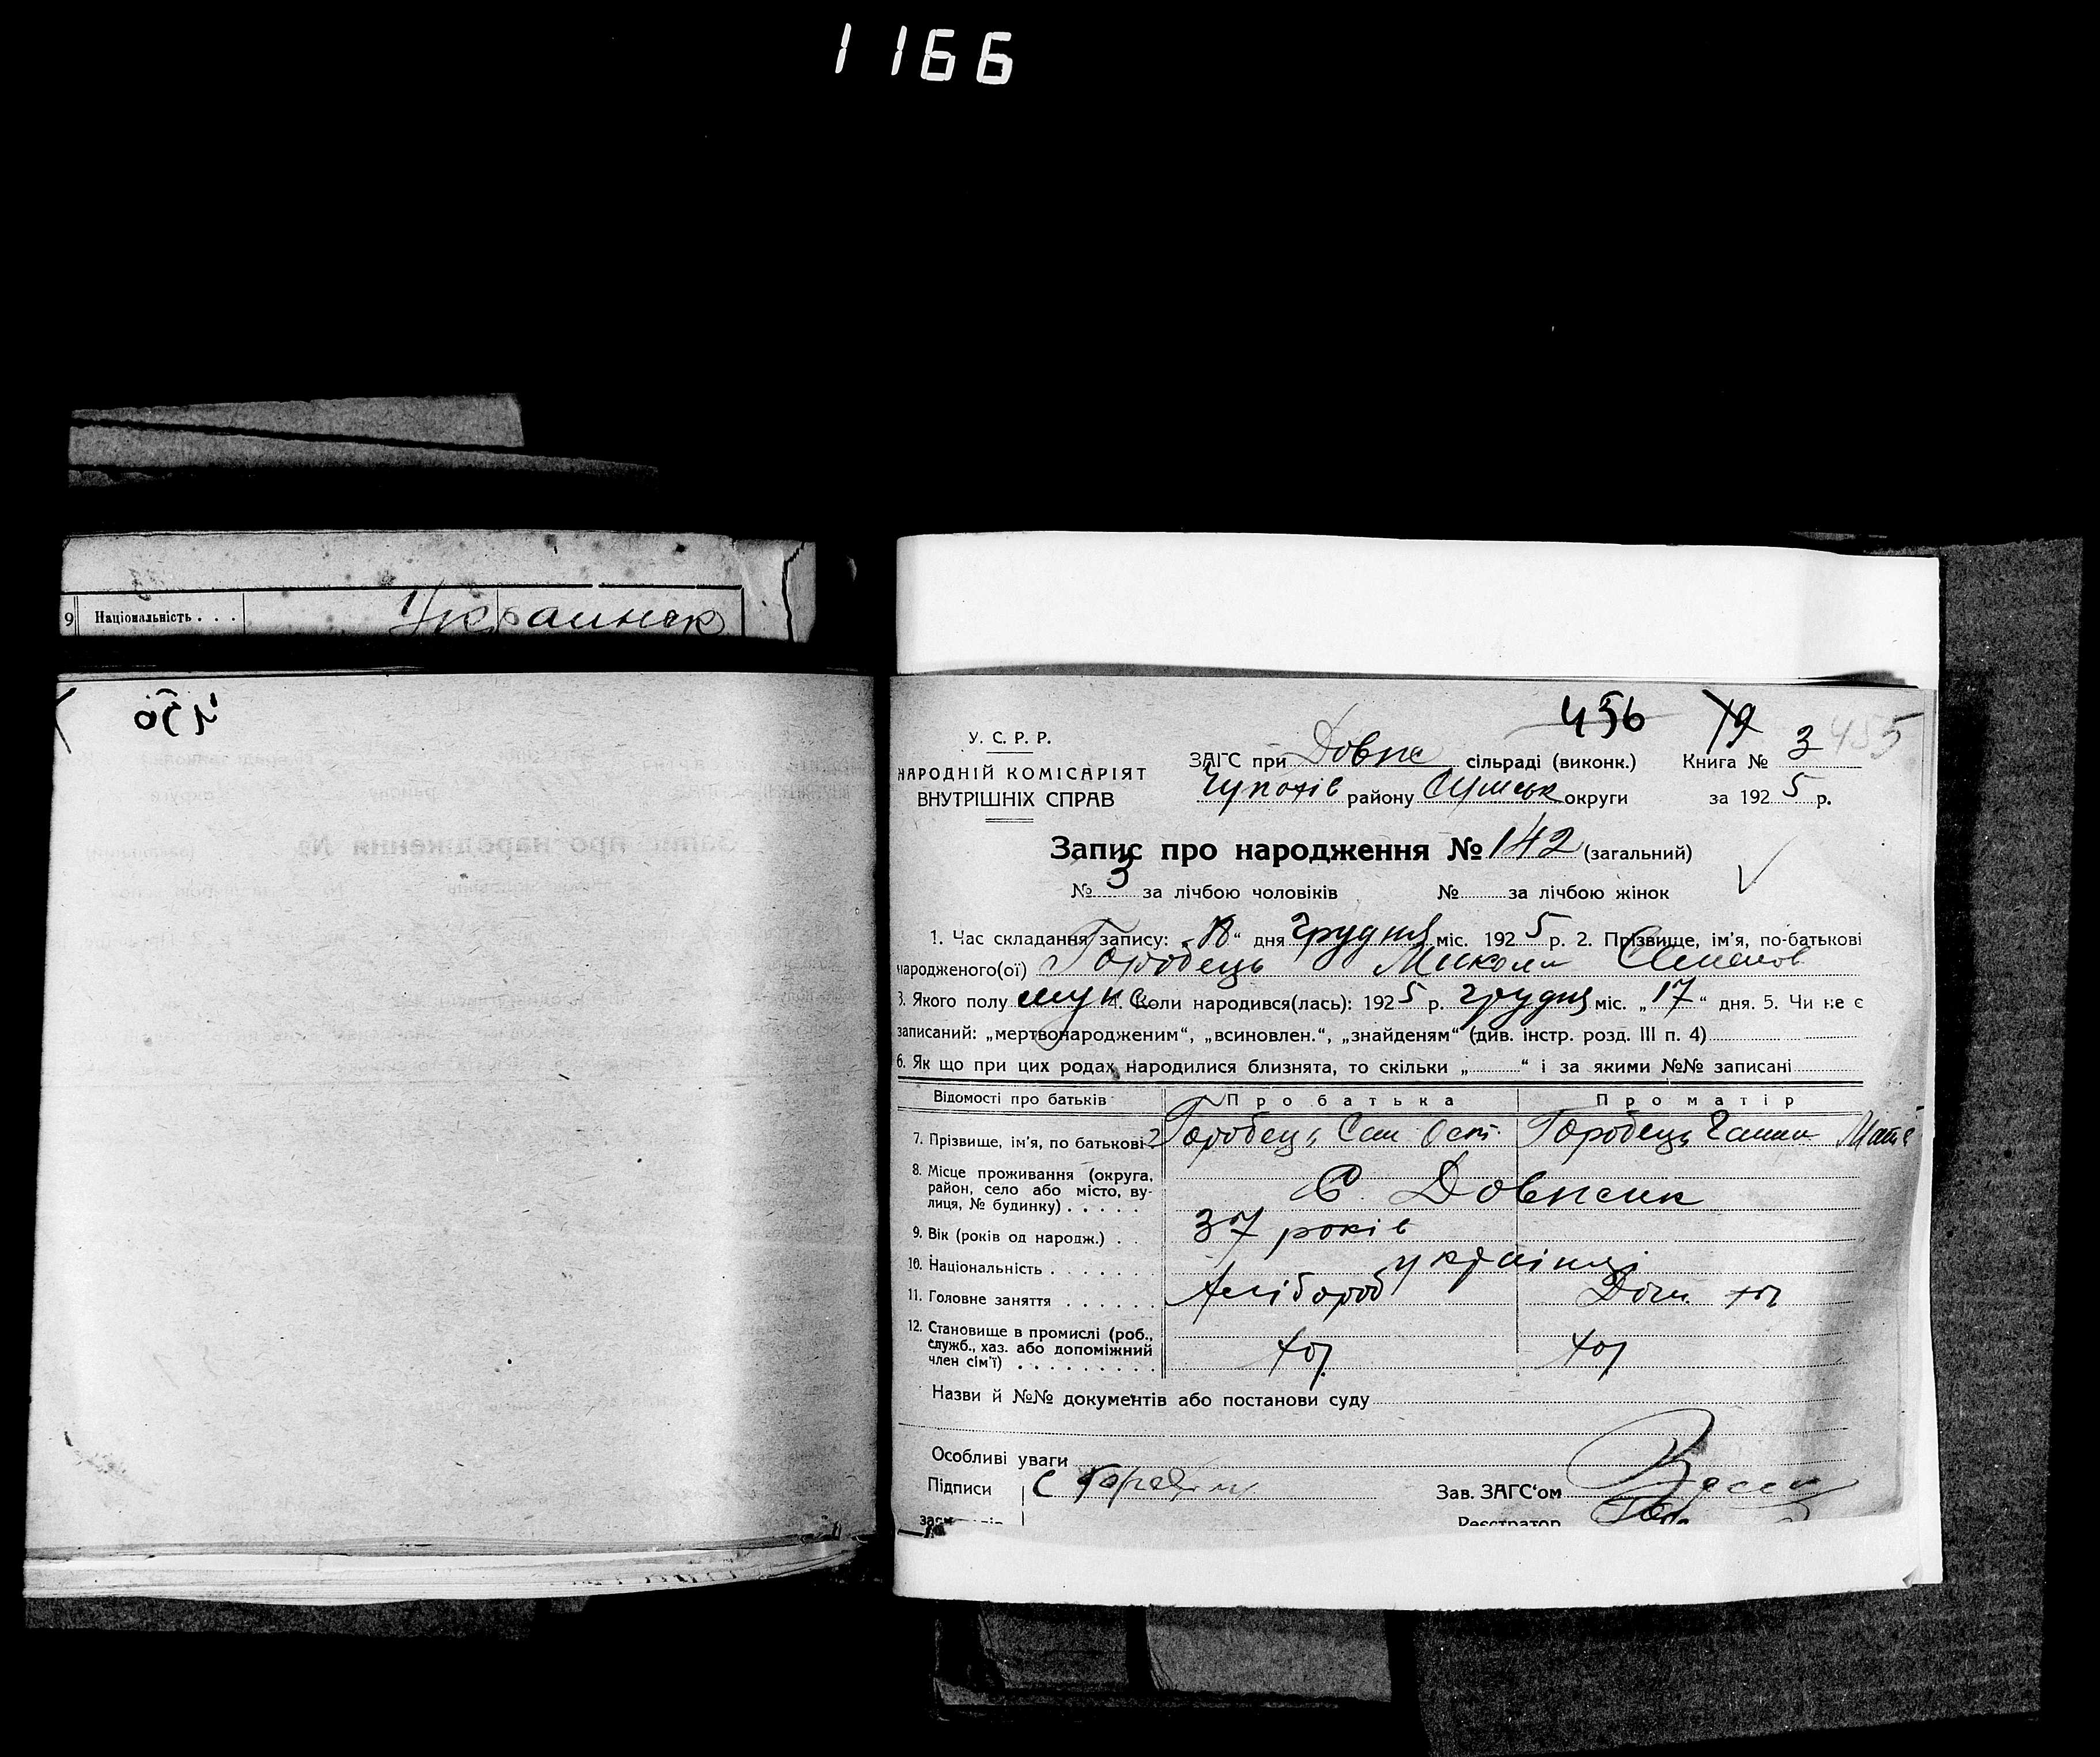 1166
9 Національність . . .
Украинск
450
456 19 455
У. С. Р. Р.
НАРОДНІЙ КОМІСАРІЯТ
ВНУТРІШНІХ СПРАВ
ЗАГС при Довж сільраді (виконк.) Книга № 3
районy Сумськ округи за 1925 р.
Запис про народження № 142 (загальний)
№ 3 за лічбою чоловіків № за лічбою жінок
1. Час складання запису: „18“ дня грудня міс. 1925 р. 2. Прізвище, ім'я, по-батькові
народженого(ої) Горобець Микола Семенов
3. Якого полу муж 4. Коли народився(лась): 1925 р. грудня міс. „17“ дня. 5. Чи не є
записаний: „мертвонародженим“, „всиновлен.“, „знайденям“ (див. інстр. розд. III п. 4)
6. Як що при цих родах народилися близнята, то скільки „ “ і за якими №№ записані
Відомості про батьків Про батька Про матір
7. Прізвище, ім'я, по батькові Горобець Сем Ост Горобець Ганна
8. Місце проживання (округа,
район, село або місто, ву-
лиця, № будинку) . . . . .
С.
9. Вік (років од народж.) . . 37 років
10. Національність . . . . . . . українці
11. Головне заняття . . . . . . Хлібороб Дом
12. Становище в промислі (роб.,
служб., хаз. або допоміжний
член сім'ї) . . . . . . . . .
Назви й №№ документів або постанови суду
Особливі уваги
Підписи С Зав. ЗАГС'ом
Реєстратор